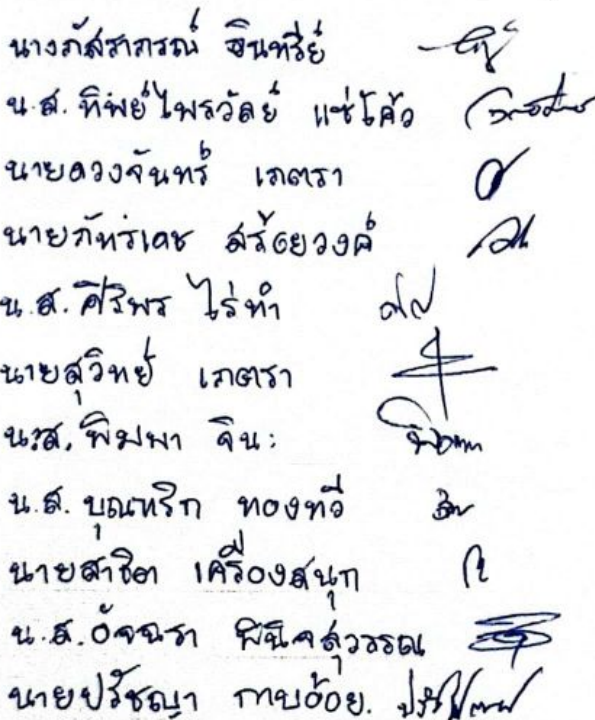 นางภัสราภรณ์ อินทรีย์
น.ส. ทิพย์ไพรวัลย์ แซ่โค้ว
นายดวงจันทร์ เภตรา
นายภัทรเดช สร้อยวงค์
น.ส. ศิริพร ไร่ทำ
นายสุวิทย์ เภตรา
น.ส. พิมพา จินะ
น.ส. บุณฑริก ทองทวี
นายสาธิต เครื่องสนุก
น.ส. อัจฉรา พินิจสุวรรณ
นายปรัชญา กาบอ้อย.